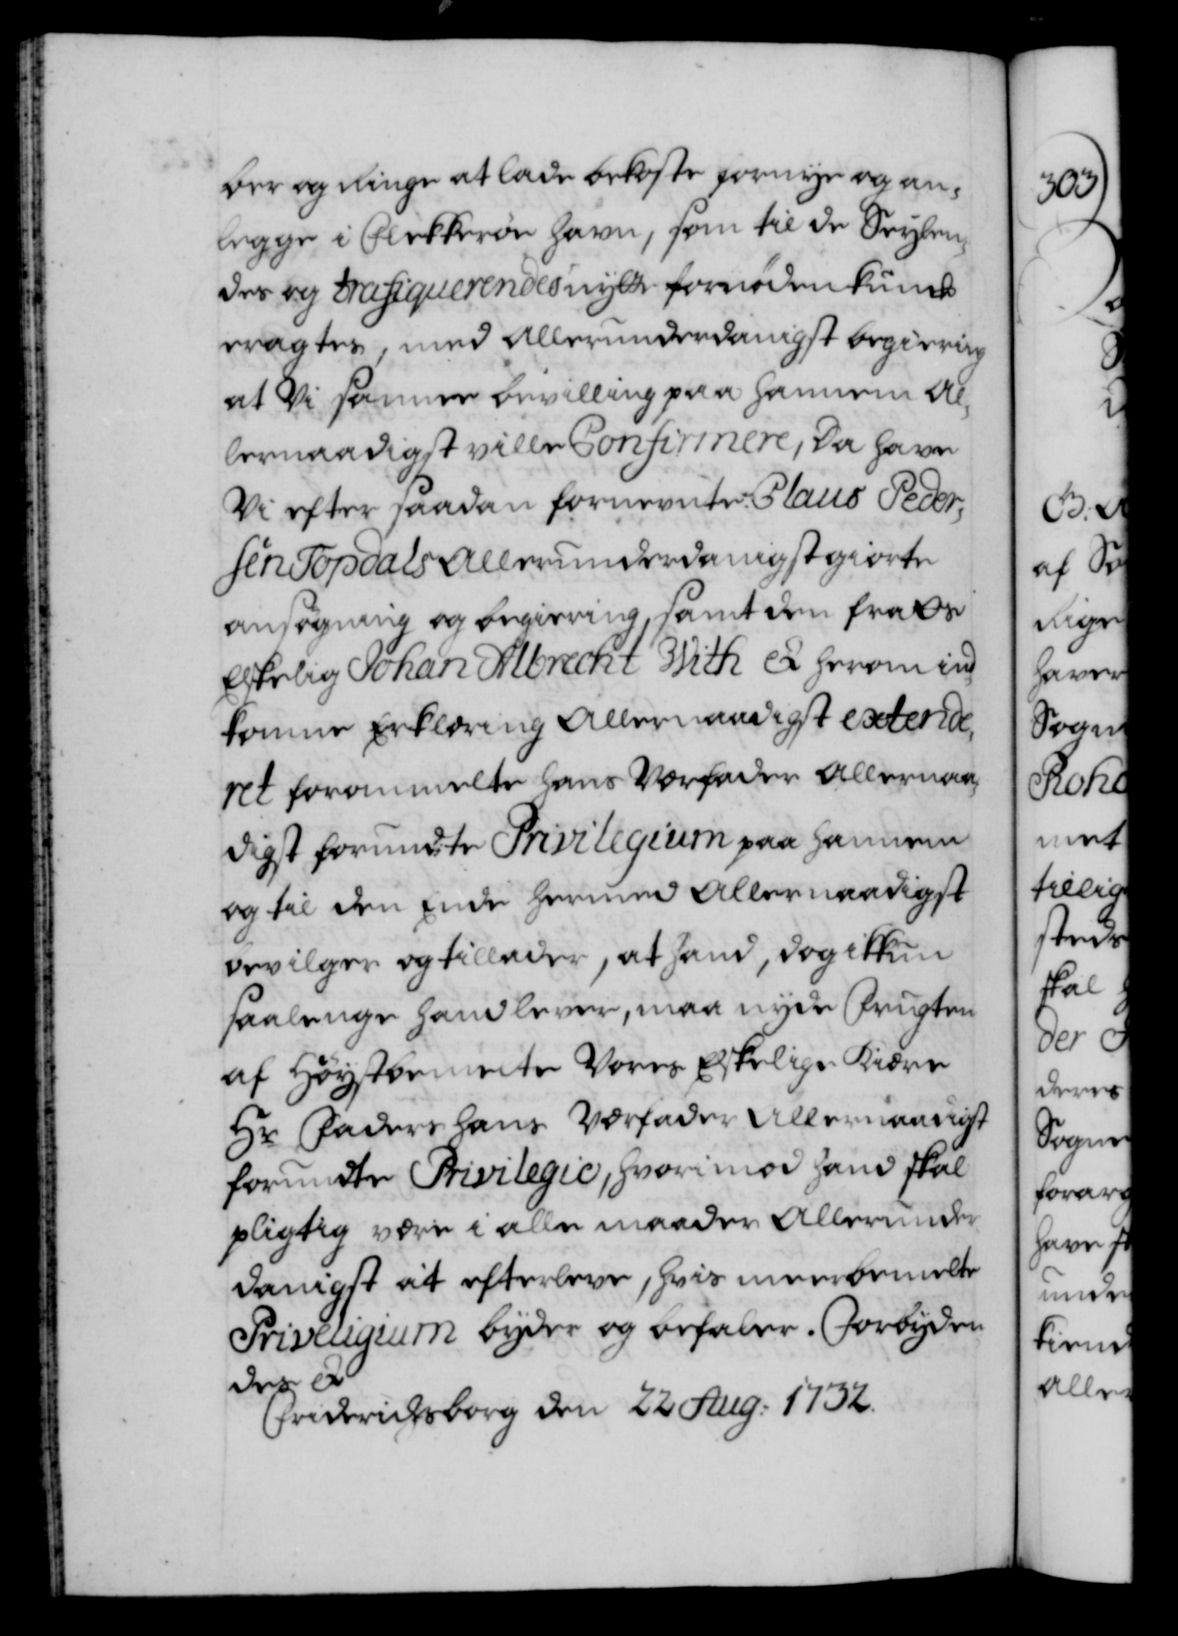 ber og Ringe at lade bekoste fornye og an-
legge i Flekkerøe Havn, som til de Seylen-
des og trafiquerendes nytte fornøden kunde
eragtes, med Allerunderdanigst begiering
at Vi samme bevilling paa hannem Al-
lernaadigst ville Confirmere, Da have
Vi efter saadan fornevnte Claus Peder-
sen Topdals Allerunderdanigst giorte
ansøgning og begiering, samt den fra Os
Elskelig Johan Albrecht With &c herom ind
komne Erklæring Allernaadigst extende-
ret forommelte hans Værfader Allernaa-
digst forundte Privilegium paa hannem
og til den Ende hermed Allernaadigst
bevilger og tillader, at hand, dog ikkun
saalenge hand lever, maa nyde Frugten
af Høystbemelte Vores Elskelige Kiære
Hr Faders hans Værfader Allernaadigst
forundte Privilegie, hvorimod hand skal
pligtig være i alle maader Allerunder
danigst at efterleve, hvis meerbemelte
Priveligium byder og befaler. Forbyden
des &c
Friderichsborg den 22 Aug: 1732.
303
G. A
af So
Rige
haver
Sogn
Roho
met
tillig
steds
skal
der
deres
Sogne
forarg
have
unde
kiend
aller